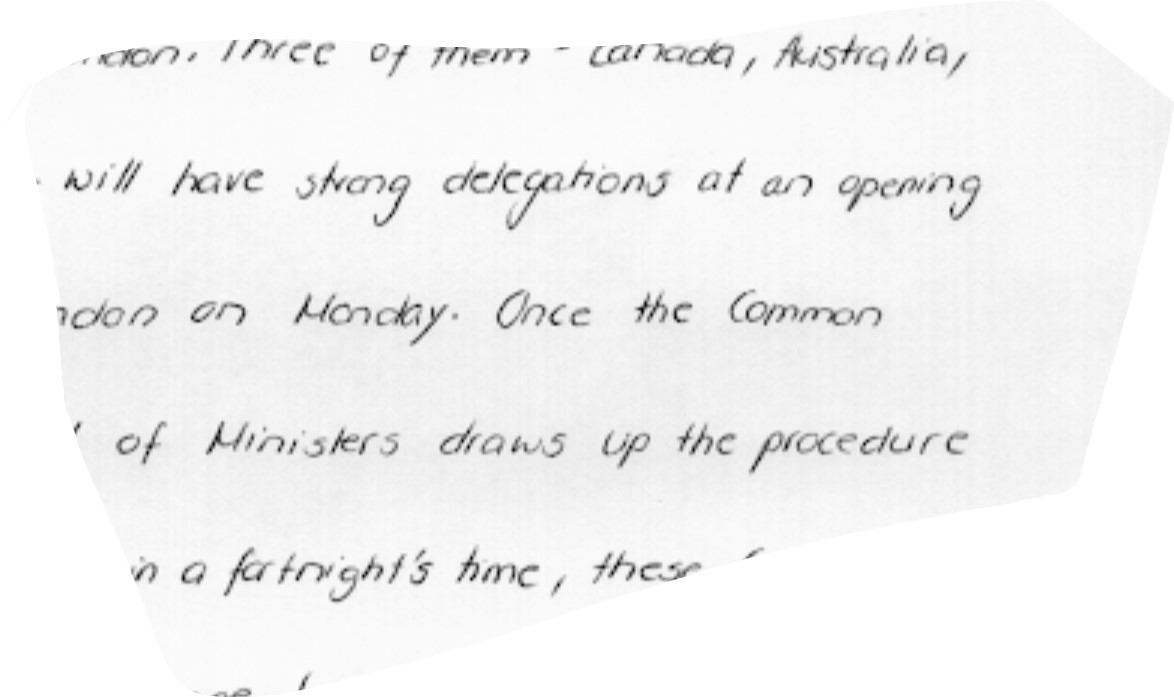 Three of them - Canada, Australia,
will have strong delegations at an opening
on Monday. Once the Common
of Ministers draws up the procedure
in a fortnight's time, these